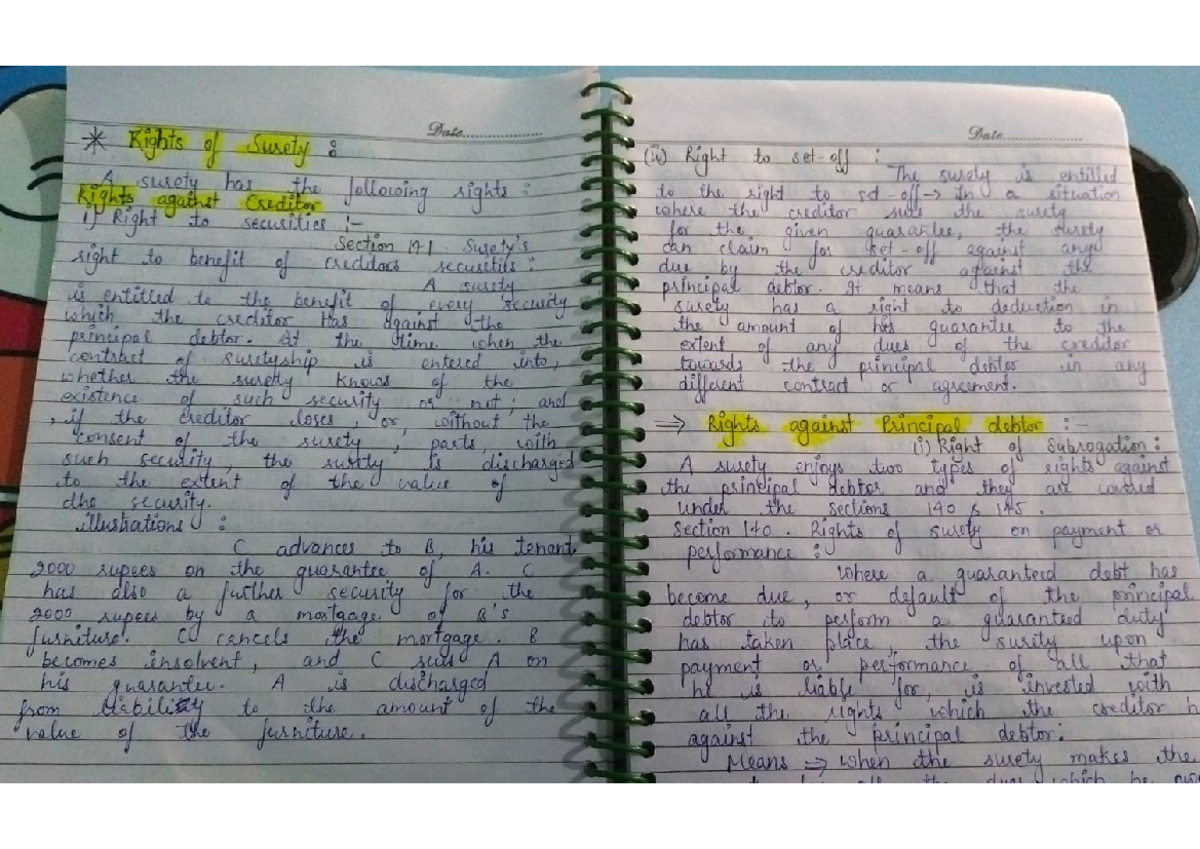 Date..................
* Rights of Surety :
A surety has the following rights :
Rights against Creditor
i) Right to securities :-
Section 141. Surety's
right to benefit of creditors securities :
A surety
is entitled to the benefit of every security
which the creditor has against the
principal debtor. At the time when the
contract of suretyship is entered into,
whether the surety knows of the
existence of such security or not; and
, if the creditor loses, or, without the
consent of the surety, parts with
such security, the surety is discharged
to the extent of the value of
the security.
illustrations :
C advances to B, his tenant
2000 rupees on the guarantee of A. C
has also a further security for the
2000 rupees by a mortgage of B's
furniture. C cancels the mortgage. B
becomes insolvent, and C sues A on
his guarantee. A is discharged
from liability to the amount of the
value of the furniture.
Date..................
Right to set-off :
The surety is entitled
to the right to set-off → In a situation
where the creditor sues the surety
for the given guarantee, the surety
can claim for set-off against any
due by the creditor against the
principal debtor. It means that the
surety has a right to deduction in
the amount of his guarantee to the
extent of any dues of the creditor
towards the principal debtor in any
different contract or agreement.
⇒ Rights against Principal debtor :-
(i) Right of Subrogation :
A surety enjoys two types of rights against
the principal debtor and they are covered
under the sections 140 & 145.
Section 140. Rights of surety on payment or
performance :
Where a guaranteed debt has
become due, or default of the principal
debtor to perform a guaranteed duty
has taken place, the surety upon
payment or performance of all that
he is liable for, is invested with
all the rights which the creditor h
against the principal debtor.
Means ⇒ When the surety makes the
all the dues which he